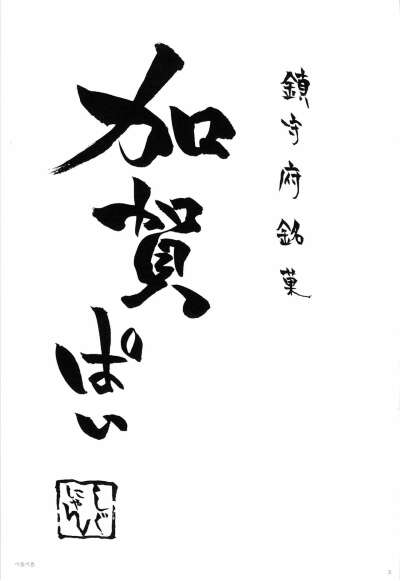 鎮守府銘菓
加賀ぱい
しぐ
にゃん